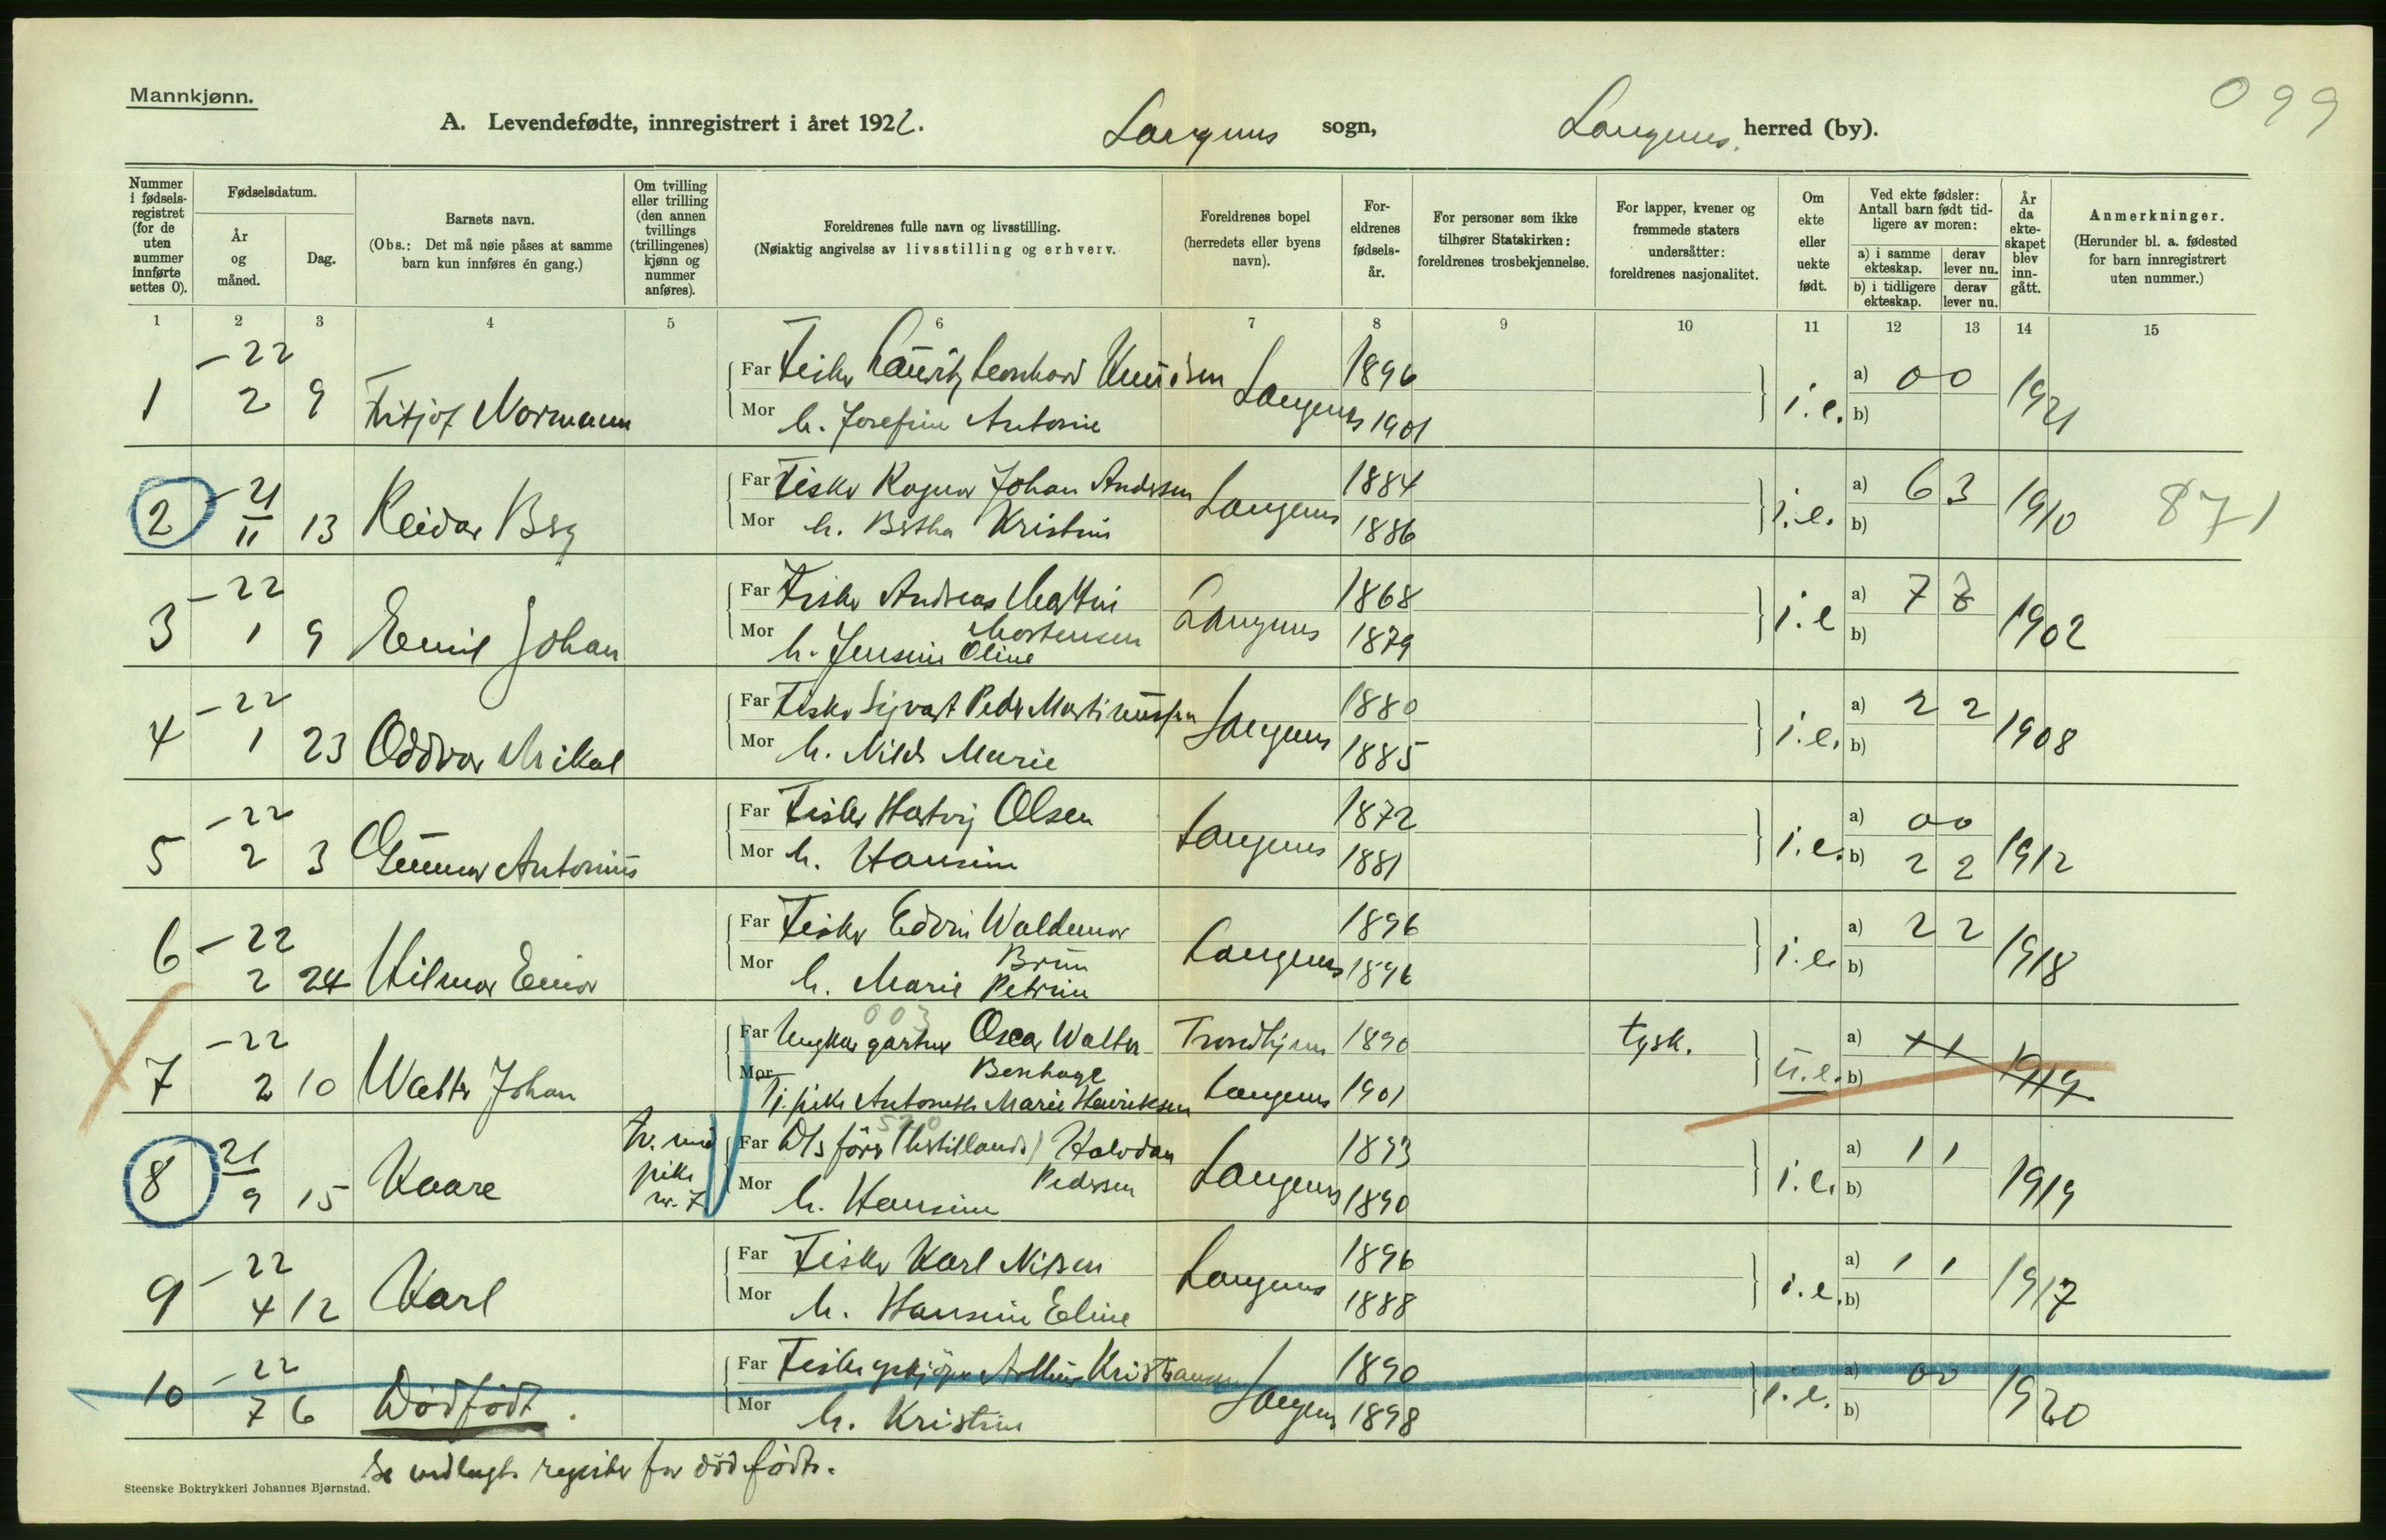 Mannkjønn.
099
A. Levendefødte, innregistrert i året 1922. Langenes sogn, Langenes. herred (by).
Nummer i fødselsregistret (for de uten nummer innførte settes 0).
Fødselsdatum.
År og måned.
Dag.
Barnets navn.
(Obs.: Det må nøie påses at samme barn kun innføres én gang.)
Om tvilling eller trilling (den annen tvillings (trillingenes) kjønn og nummer anføres).
Foreldrenes fulle navn og livsstilling.
(Nøiaktig angivelse av livsstilling og erhverv.
Foreldrenes bopel (herredets eller byens navn).
Foreldrenes fødselsår.
For personer som ikke tilhører Statskirken: foreldrenes trosbekjennelse.
For lapper, kvener og fremmede staters undersåtter: foreldrenes nasjonalitet.
Om ekte eller uekte født.
Ved ekte fødsler: Antall barn født tidligere av moren:
a) i samme ekteskap. derav lever nu.
b) i tidligere ekteskap. derav lever nu.
År da ekteskapet blev inngått.
Anmerkninger.
(Herunder bl. a. fødested for barn innregistrert uten nummer.)
1 2 3 4 5 6 7 8 9 10 11 12 13 14 15
-22
Far Fisker Lauritz Leonhard Knudsen Langenes 1896 a) 0 0
1 2 9 Fritjof Normann i.e. 1921
Mor h. Josefine Antonie 1901 b)
-21
Far Fisker Ragnar Johan Andersen Langenes 1884 a) 6 3
2 11 13 Reidar Berg i.e. 1910 871
Mor h. Bertha Kristine 1886 b)
-22
Far Fisker Andreas Martin Mortensen Langenes 1868 a) 7 7
3 1 9 Emil Johan i.e 1902
Mor h. Jensine Oline 1879 b)
-22
Far Fisker Sigvart Peder Martinussen Langenes 1880 a) 2 2
4 1 23 Oddvar Mikal i.e. 1908
Mor h. Marie 1885 b)
-22
Far Fisker Hartvig Olsen Langenes 1872 a) 0 0
5 2 3 Gunnar Antonius i.e. 1912
Mor h. Hansine 1881 b) 2 2
-22
Far Fisker Edvin Waldemar Brun Langenes 1896 a) 2 2
6 2 24 Hilmar Einar i.e. 1918
Mor h. Marie Petrine 1896 b)
003
-22
Far Ungkar gartner Oscar Walter Benhage Trondhjem 1890 tysk. a) 1 1
7 2 10 Walter Johan u.e. 1919
Mor Tj. pike Antonette Marie Henriksen Langenes 1901 b)
520
21
Far (Vestillands) Halvdan Pedersen Langenes 1893 a) 1 1
8 9 15 Kaare tv. med pike nr. 7 i.e. 1919
Mor h. Hansine 1890 b)
-22
Far Fisker Karl Nilsen Langenes 1896 a) 1 1
9 4 12 Karl i.e. 1917
Mor h. Hansine Eline 1888 b)
-22
Far Arthur Kristiansen Langenes 1890 a) 0 0
10 7 6 Dødfødt. i.e. 1920
Mor h. Kristine 1898 b)
Se vedlagte register for dødfødte.
Steenske Boktrykkeri Johannes Bjørnstad.